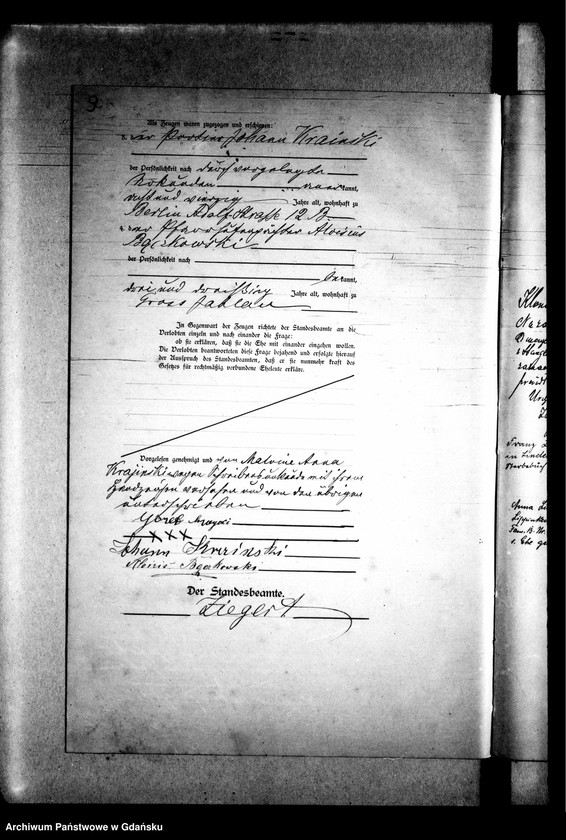 9.
Als Zeugen waren zugezogen und erschienen:
3. der Portier Johann Krainski
der Persönlichkeit nach durch vorgelegte
Urkunden kannt,
und vierzig Jahre alt, wohnhaft zu
Berlin Adolfstrasse 12 B.
4. der Pfarrhufenpächter Aloisius
Bączkowski
der Persönlichkeit nach
bekannt,
drei und dreißig Jahre alt, wohnhaft zu
Gross Jablau
In Gegenwart der Zeugen richtete der Standesbeamte an die
Verlobten einzeln und nach einander die Frage:
ob sie erklären, daß sie die Ehe mit einander eingehen wollen.
Die Verlobten beantworteten diese Frage bejahend und erfolgte hierauf
der Ausspruch des Standesbeamten, daß er sie nunmehr kraft des
Gesetzes für rechtmäßig verbundene Eheleute erkläre.
Vorgelesen, genehmigt und von Malwine Anna
Krajinski wegen Schreibensunkunde mit ihrem
Handzeichen versehen und von den übrigen
unterschrieben
Józef
+ X X X
Johann Krainski
Bączkowski
Der Standesbeamte.
Ziegert
Franz
in Linde
Anna
Archiwum Państwowe w Gdańsku